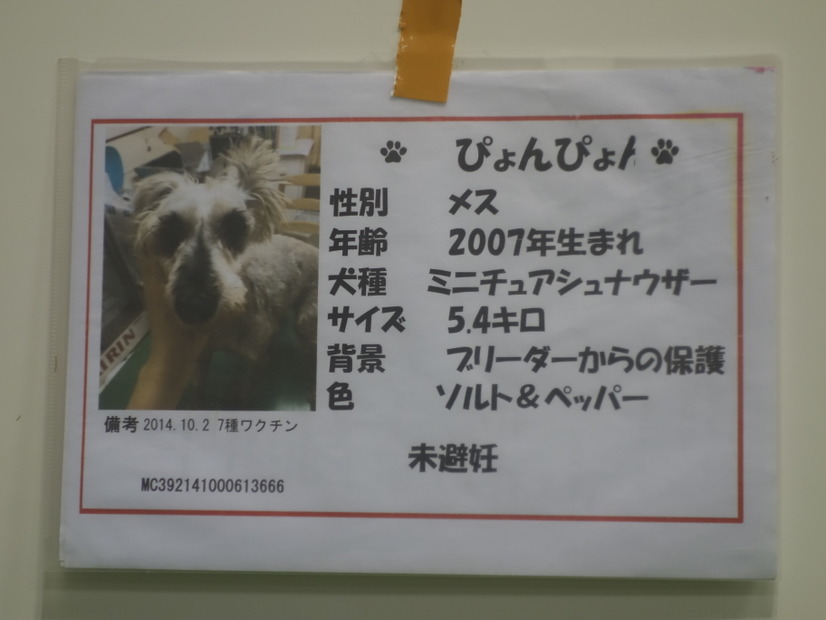 ぴょんぴょん
性別 メス
年齢 2007年生まれ
犬種 ミニチュアシュナウザー
サイズ 5.4キロ
背景 ブリーダーからの保護
色 ソルト&ペッパー
未避妊
備考 2014.10.2 7種ワクチン
MC392141000613666
IRIN